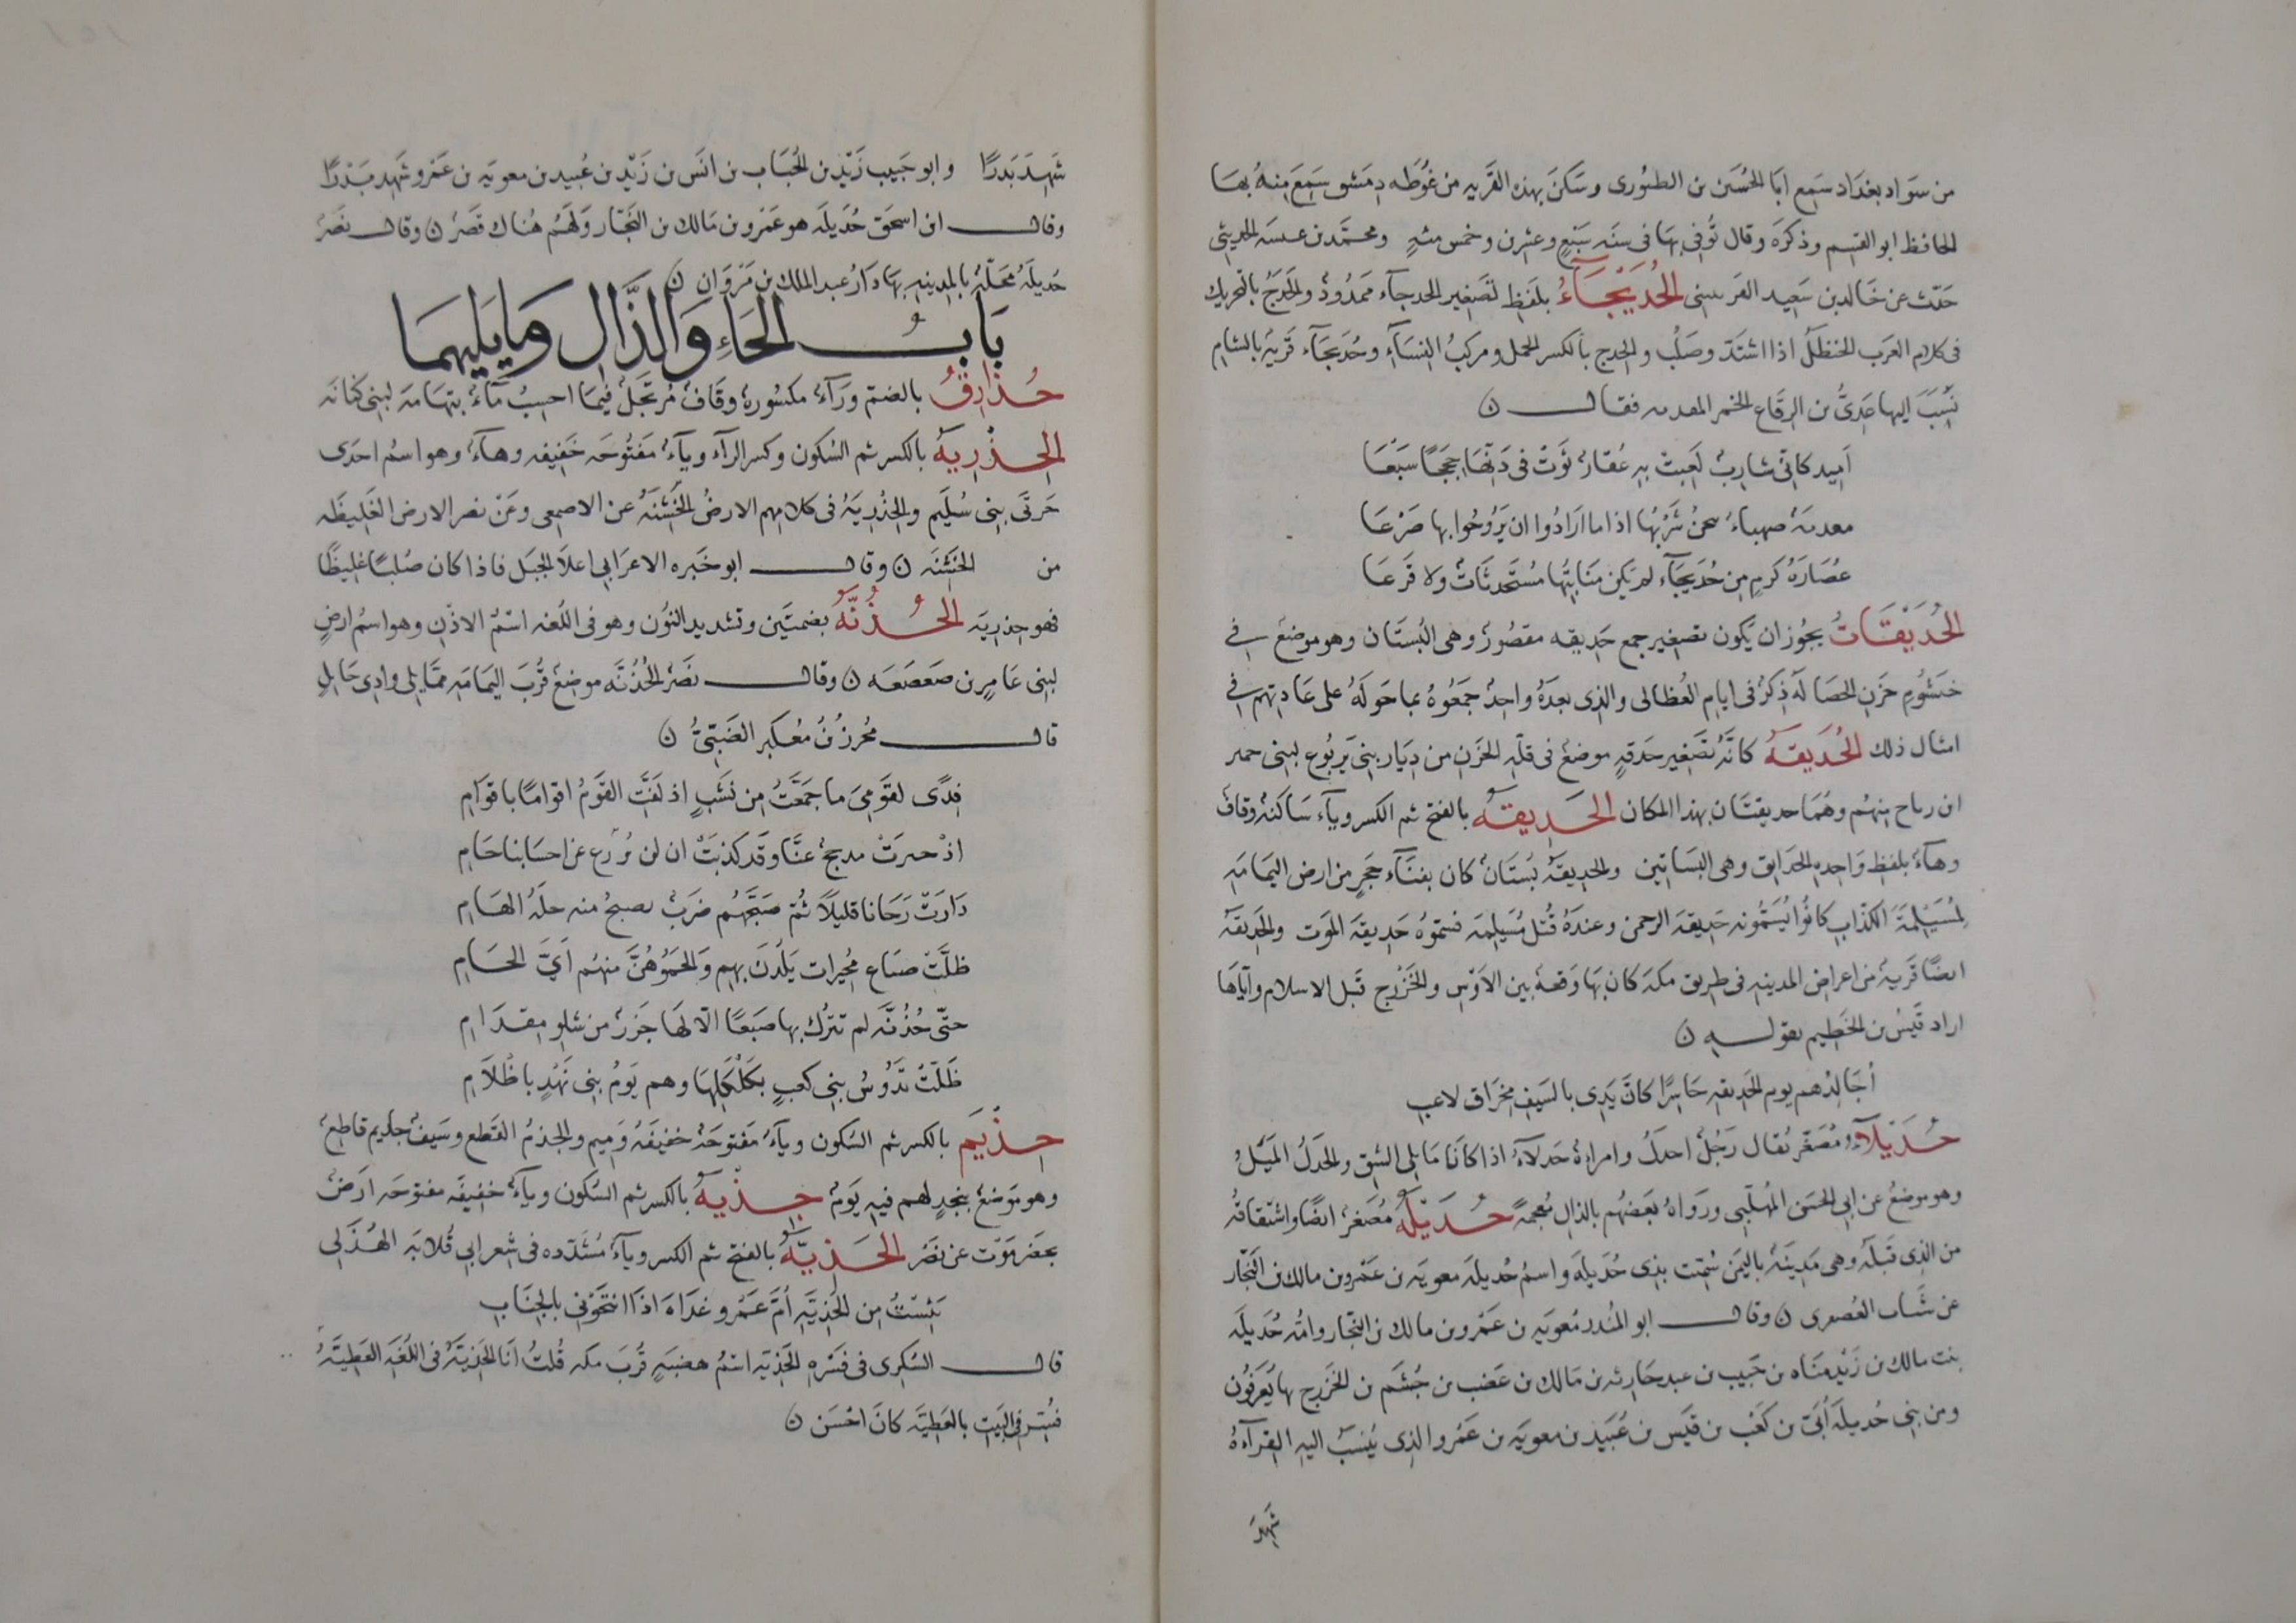 من سواد بغداد سمع ابا الحسين بن الطيورى وسكن بهذه القريه من غوطه دمشق سمع منه بها
الحافظ ابو القسم وذكره وقال توفى بها فى سنه سبع وعشرين وخمس مئه ومحمد بن عنبسه الحديثى
حدث عن خالد بن سعيد الحُدَيْجَآءُ بلفظ تصغير الحدجآء ممدود والحدج بالتحريك
فى كلام العرب الحنظل اذا اشتد وصلب والحدج بالكسر الحمل ومركب النسآء وحديجآء قرية بالشام
نسب إليها عدى بن الرقاع الخمر فقال ن
اميد كانى شارب لعبت به عقار ثوت فى دنها حججا سبعا
صهباء شربها اذا ما ارادوا ان يروحوا بها صرعا
عصارة كرم من حديجآء لم تكن منابتها مستحدثات ولا قرعا
الحُدَيْقَاتُ يجوز ان يكون تصغير جمع حديقه مقصور وهى البستان وهو موضع فى
خيشوم حزن الخصا له ذكر فى ايام العظالى والذى بعده واحد جمعوه بما حوله على عادتهم فى
امثال ذلك الحُدَيقَةُ كانه تصغير حدقة موضع فى قلة الحزن من ديار بنى يربوع لبنى حمير
ابن رياح منهم وهما حديقتان بهذا المكان الحَدِيقَةُ بالفتح ثم الكسر ويآء ساكنة وقاف
وهآء بلفظ واحده الحدايق وهى البساتين والحديقة بستان كان بفنآء حجر من ارض اليمامه
لمسيلمة الكذاب كانوا يسمونه حديقه الرحمن وعنده قتل مسيلمه فسموه حديقه الموت والحديقة
ايضا قرية من اعراض المدينه فى طريق مكه كان بها وقعة بين الاوس والخزرج قبل الاسلام واياها
اراد قيس بن الخطيم بقوله ن
أجالدهم يوم الحديقه حاسرا كان يدى بالسيف مخراق لاعب
حُدَيْلآءُ مصغر يقال رجل احدل وامراة حدلآء اذا كانا مايلى الشق والحدل الميل
وهو موضع عن ابى الحسن المهلبى ورواه بعضهم بالذال معجمة حُدَيْلَةُ مصغر ايضا واشتقاقه
من الذى قبله وهى مدينة باليمن سميت بذى حديله واسم حديله معويه بن عمرو بن مالك بن النجار
عن شباب العصفرى ن وقال ابو المنذر معويه بن عمرو بن مالك بن النجار وامه حديله
بنت مالك بن زيد مناه بن حبيب بن عبد حارثه بن مالك بن غضب بن جشم بن الخزرج بها يعرفون
ومن بنى حديلة أبى بن كعب بن قيس بن عبيد بن معويه بن عمرو الذى ينسب اليه القرآءة
شهد
شهد بدرا وابو حبيب زيد بن الحباب بن انس بن زيد بن عبيد بن معويه بن عمرو شهد بدرا
وقال ابن اسحق حديله هو عمرو بن مالك بن النجار ولهم هناك قصر ن وقال نصر
حديلة محلة بالمدينه بها دار عبد الملك بن مروان ن
بَابُ الحَاءِ وَالذَّالِ وَمَا يَلِيهِمَا
حُذَارِقُ بالضم ورآء مكسورة وقاف مرتجل فيما احسب مآء بتهامه لبنى كنانه
الحِذْرِيَةُ بالكسر ثم السكون وكسر الرآء ويآء مفتوحه خفيفه وهآء وهو اسم احدى
حرتى بنى سليم والحذرية فى كلامهم الارض الخشنة عن الاصمعى وعن نصر الارض الغليظه
من الخشنه ن وقال ابو خيره الاعرابى اعلا الجبل فاذا كان صلبا غليظا
فهو حذريه الحُذُنَّةُ بضمتين وتشديد النون وهو فى اللغه اسم الاذن وهو اسم ارض
لبنى عامر بن صعصعه ن وقال نصر الحذنه موضع قرب اليمامه مما يلى وادى حايل
قال محرز بن مكعبر الضبى ن
فدى لقومى ما جمعت من نشب اذ لفت القوم اقواما باقوام
اذ مدحج عنا وقد كذبت ان لن يورع عن احسابنا حام
دارت رحانا قليلا ثم صبحهم ضرب يصيح منه حله الهام
ظلت ضباع مجيرات يلذن بهم والحموهن منهم اى الحام
حتى حذنه لم تترك بها ضبعا الا لها جزر من شلو مقدام
ظلت تدوس بنى كعب بكلكلها وهم يوم بنى نهد باظلام
حِذْيَم بالكسر ثم السكون ويآء مفتوحة خفيفة وميم والحذم القطع وسيف حذيم قاطع
وهو موضع بنجد لهم فيه يوم حِذْيَةُ بالكسر ثم السكون ويآء خفيفه مفتوحه ارض
بحضرموت عن نصر الحَذِيَّةُ بالفتح ثم الكسر ويآء مشدده فى شعر ابى قلابه الهذلى
يئست من الحذيه ام عمرو غداة اذا انتحونى بالجناب
قال السكرى فى فسره الحذيه اسم هضبة قرب مكه قلت انا الحذية فى اللغة العطية
فستر فى البيت بالعطيه كان احسن ن